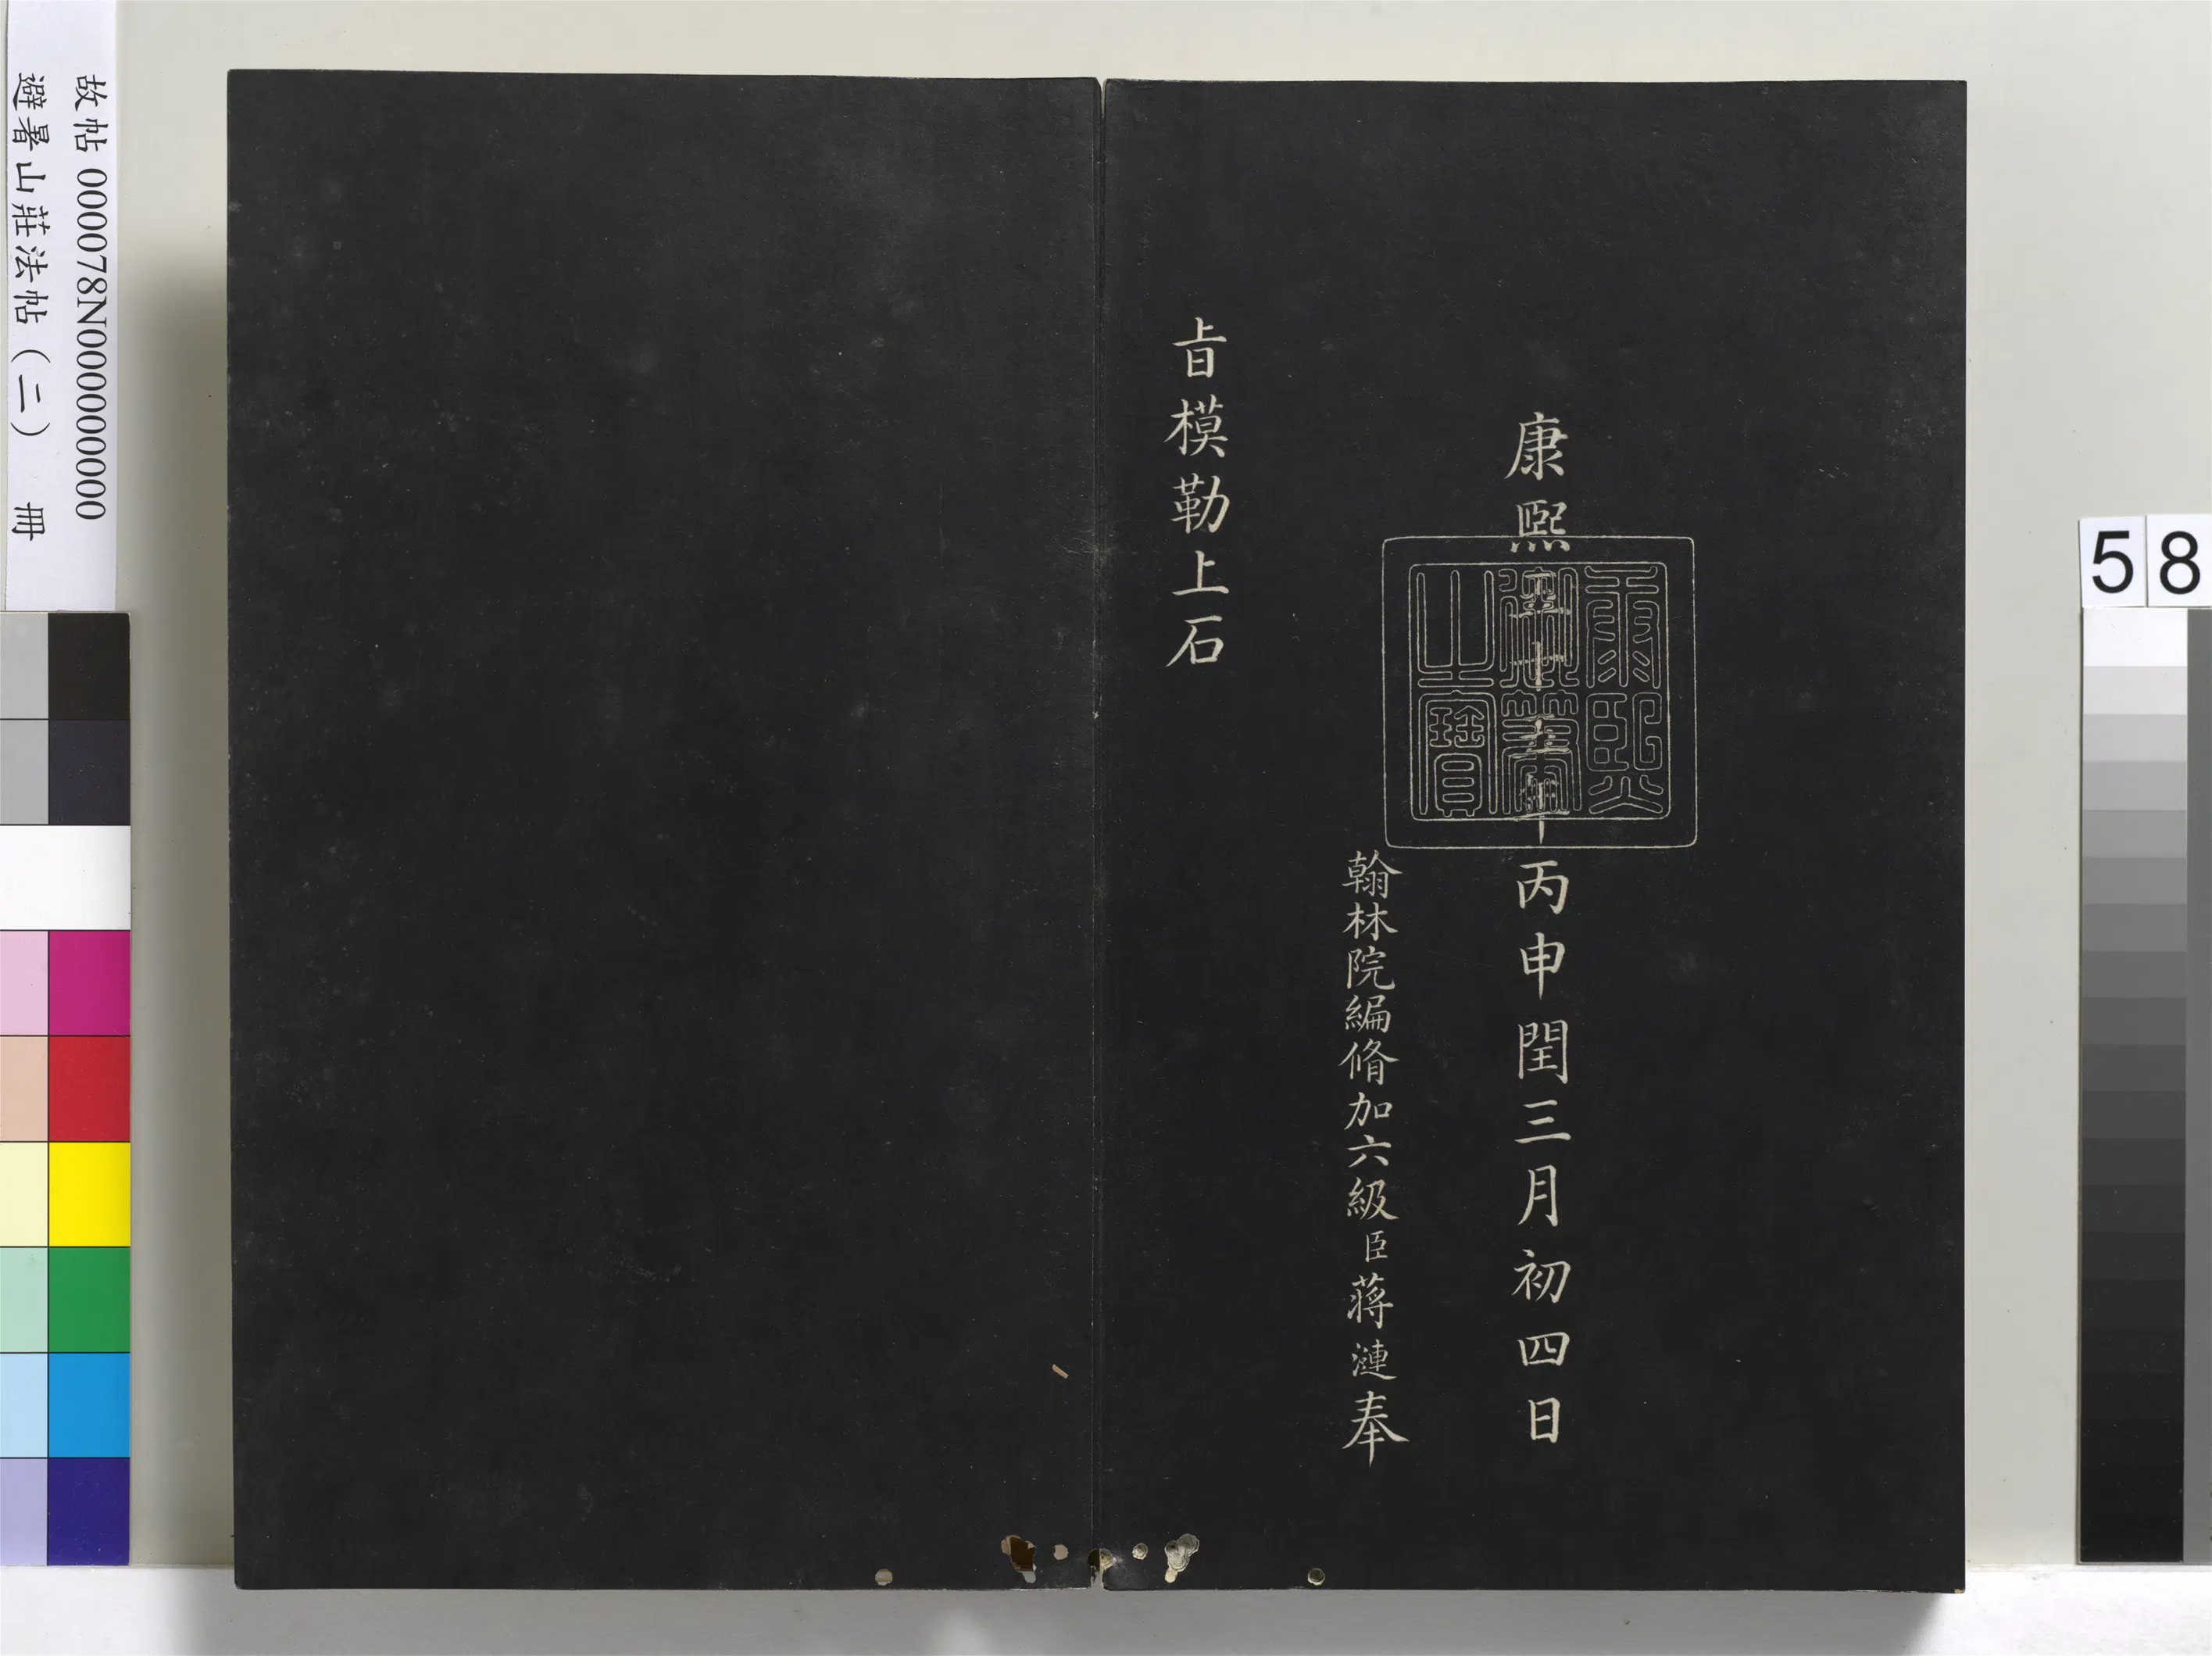 康熙五十五年丙申閏三月初四日
康熙御筆之寶
翰林院編脩加六級臣蔣漣奉
旨模勒上石
故帖 000078N000000000
避暑山莊法帖（二） 冊
58